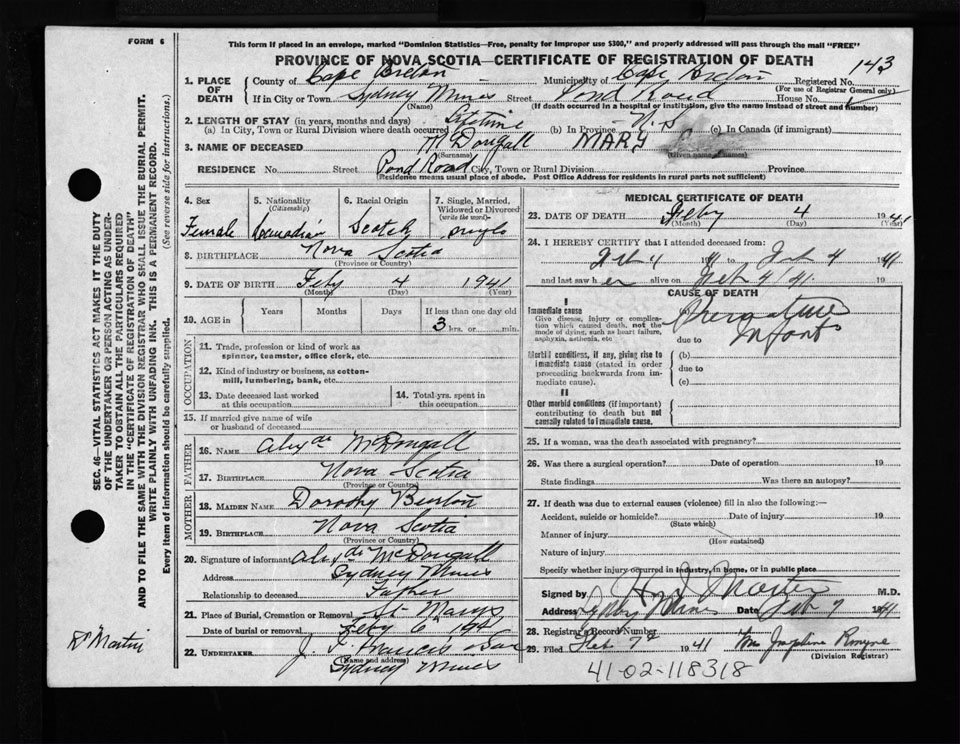 FORM 6
This form if placed in an envelope, marked "Dominion Statistics—Free, penalty for improper use $300," and properly addressed will pass through the mail "FREE"
PROVINCE OF NOVA SCOTIA—CERTIFICATE OF REGISTRATION OF DEATH
143
1. PLACE OF DEATH County of Cape Breton Municipality of Cape Breton Registered No.
(For use of Registrar General only)
If in City or Town Sydney Mines Street Pond Road House No.
(Name) (If death occurred in a hospital or institution, give the name instead of street and number)
2. LENGTH OF STAY (in years, months and days)
(a) In City, Town or Rural Division where death occurred Lifetime (b) In Province N.S (c) In Canada (if immigrant)
3. NAME OF DECEASED McDougall MARY
(Surname) (Given name or names)
RESIDENCE No. Street Pond Road City, Town or Rural Division Province
(Residence means usual place of abode. Post Office Address for residents in rural parts not sufficient)
4. Sex Female
5. Nationality (Citizenship) Canadian
6. Racial Origin Scotch
7. Single, Married, Widowed or Divorced (write the word) Single
8. BIRTHPLACE Nova Scotia
(Province or Country)
9. DATE OF BIRTH Feby 4 1941
(Month) (Day) (Year)
10. AGE in Years Months Days If less than one day old
3 hrs. or min.
OCCUPATION
11. Trade, profession or kind of work as spinner, teamster, office clerk, etc.
12. Kind of industry or business, as cotton-mill, lumbering, bank, etc.
13. Date deceased last worked at this occupation
14. Total yrs. spent in this occupation
15. If married give name of wife or husband of deceased
FATHER
16. NAME Alexdr McDougall
17. BIRTHPLACE Nova Scotia
(Province or Country)
MOTHER
18. MAIDEN NAME Dorothy Benton
19. BIRTHPLACE Nova Scotia
(Province or Country)
20. Signature of informant Alexdr McDougall
Address Sydney Mines
Relationship to deceased Father
21. Place of Burial, Cremation or Removal St Marys
Date of burial or removal Feby 6 1941
22. UNDERTAKER J. F. Francis & Son
(Name and address)
Sydney Mines
MEDICAL CERTIFICATE OF DEATH
23. DATE OF DEATH Feby 4 1941
(Month) (Day) (Year)
24. I HEREBY CERTIFY that I attended deceased from:
Feb 4 1941 to Feb 4 1941
and last saw her alive on Feb 4/41 19
CAUSE OF DEATH
I
Immediate cause
Give disease, injury or complication which caused death, not the mode of dying, such as heart failure, asphyxia, asthenia, etc.
(a) Premature
due to Infant
Morbid conditions, if any, giving rise to immediate cause (stated in order proceeding backwards from immediate cause).
(b)
due to
(c)
II
Other morbid conditions (if important) contributing to death but not causally related to immediate cause.
25. If a woman, was the death associated with pregnancy?
26. Was there a surgical operation? Date of operation 19
State findings Was there an autopsy?
27. If death was due to external causes (violence) fill in also the following:—
Accident, suicide or homicide? Date of injury 19
(State which)
Manner of injury
(How sustained)
Nature of injury
Specify whether injury occurred in industry, in home, or in public place
Signed by M.D.
Address Sydney Mines Date Feb 7 1941
28. Registrar's Record Number
29. Filed Feb 7th 1941 Mrs Josephine
(Division Registrar)
41-02-118318
SEC. 46—VITAL STATISTICS ACT MAKES IT THE DUTY
OF THE UNDERTAKER OR PERSON ACTING AS UNDERTAKER TO OBTAIN ALL THE PARTICULARS REQUIRED
IN THE "CERTIFICATE OF REGISTRATION OF DEATH"
AND TO FILE THE SAME WITH THE DIVISION REGISTRAR WHO SHALL ISSUE THE BURIAL PERMIT.
WRITE PLAINLY WITH UNFADING INK. THIS IS A PERMANENT RECORD.
Every item of information should be carefully supplied. (See reverse side for instructions).
Dr Martin